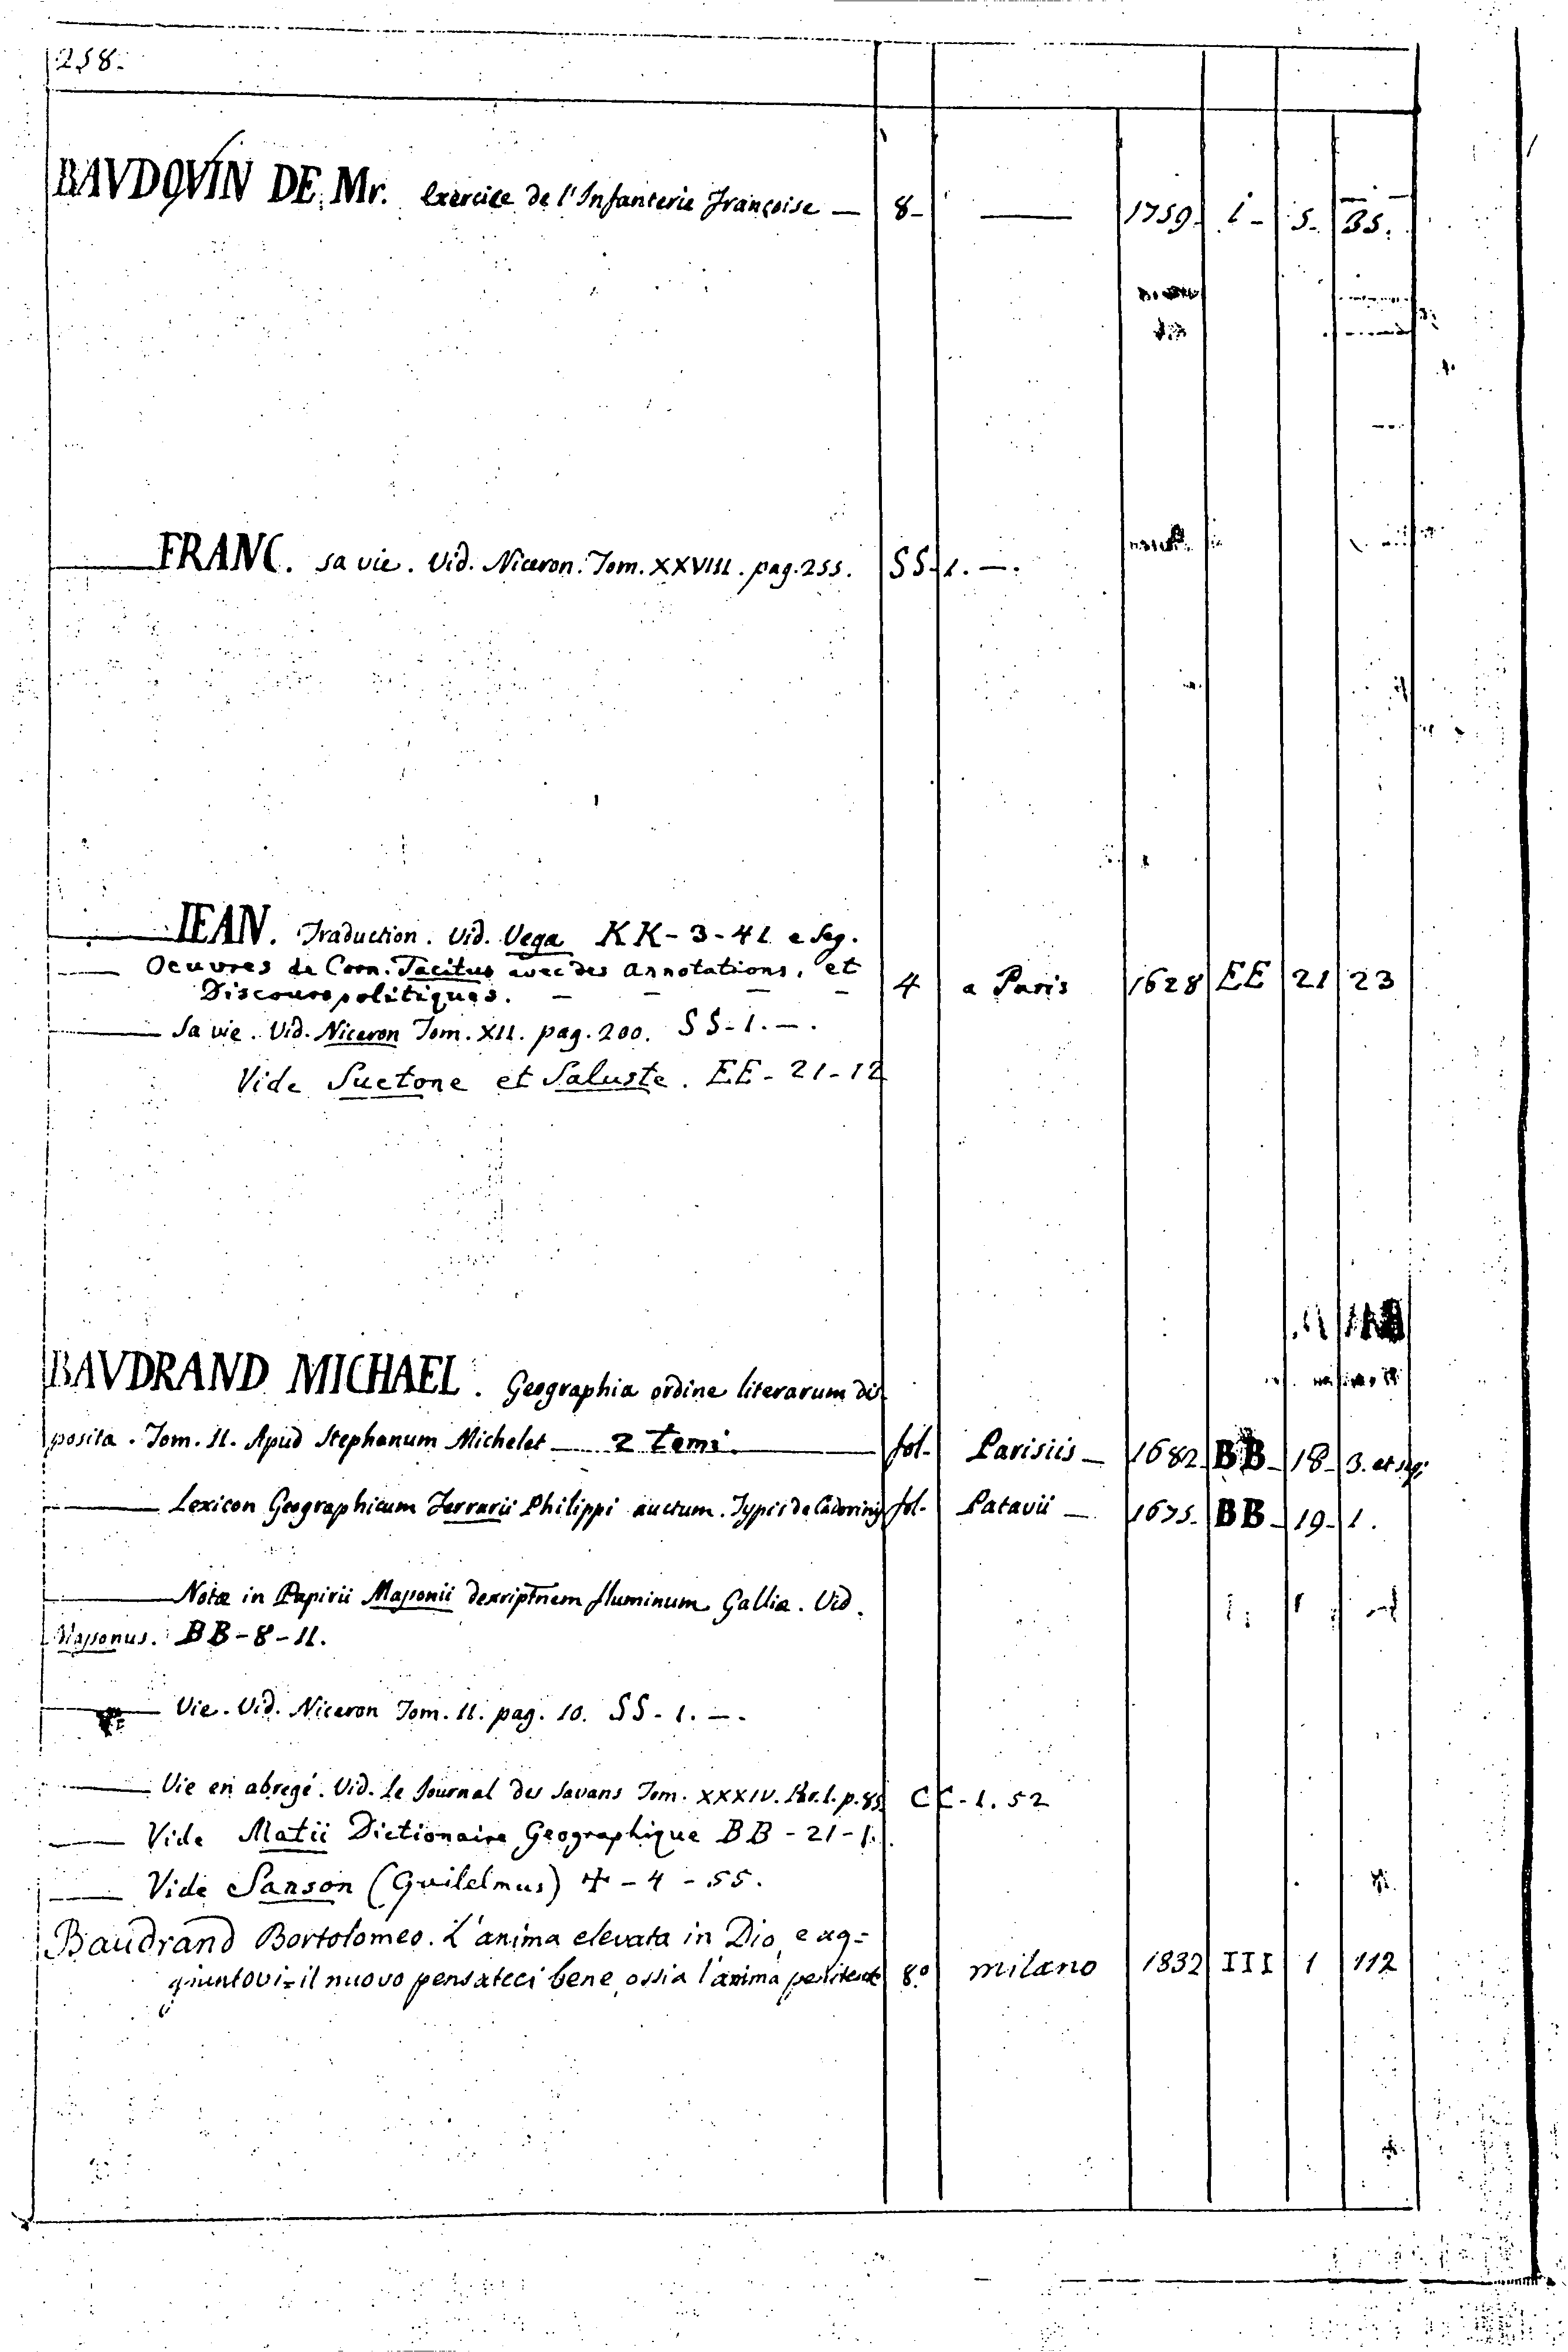 258.
BAVDOVIN DE Mr. Exercice de l'Infanterie Françoise — 8- — 1759. i - 5. 35.
— FRANC. sa vie. Vid. Niceron. Tom. XXVIII. pag. 255. SS-1. —.
— IEAN. Traduction. Vid. Vega KK-3-41 e seg.
— Oeuvres de Corn. Tacitus avec des Annotations, et
Discours politiques. — — — — 4 a Paris 1628 EE 21 23
— Sa vie. Vid. Niceron Tom. XII. pag. 200. SS-1. —.
Vide Suetone et Saluste. EE-21-12
BAVDRAND MICHAEL. Geographia ordine literarum dis
posita. Tom. II. Apud Stephanum Michelet — 2 Tomi. — fol. Parisiis — 1682. BB - 18 - 3. et seq:
— Lexicon Geographicum Ferrarii Philippi auctum. Typis de Cadorinis fol. Patavii — 1675. BB - 19 - 1.
— Notæ in Papirii Massonii descriptnem fluminum Galliæ. Vid.
Massonus. BB-8-11.
— Vie. Vid. Niceron Tom. II. pag. 10. SS-1. —.
— Vie en abregé. Vid. Le Journal des Savans Tom. XXXIV. Par. 1. p. 85 CC-1. 52
— Vide Matii Dictionaire Geographique BB-21-1.
— Vide Sanson (Guilelmus) +-4-55.
Baudrand Bortolomeo. L'anima elevata in Dio, e ag=
giuntovi=il nuovo pensateci bene, ossia l'anima penitente 8.º milano 1832 III 1 112